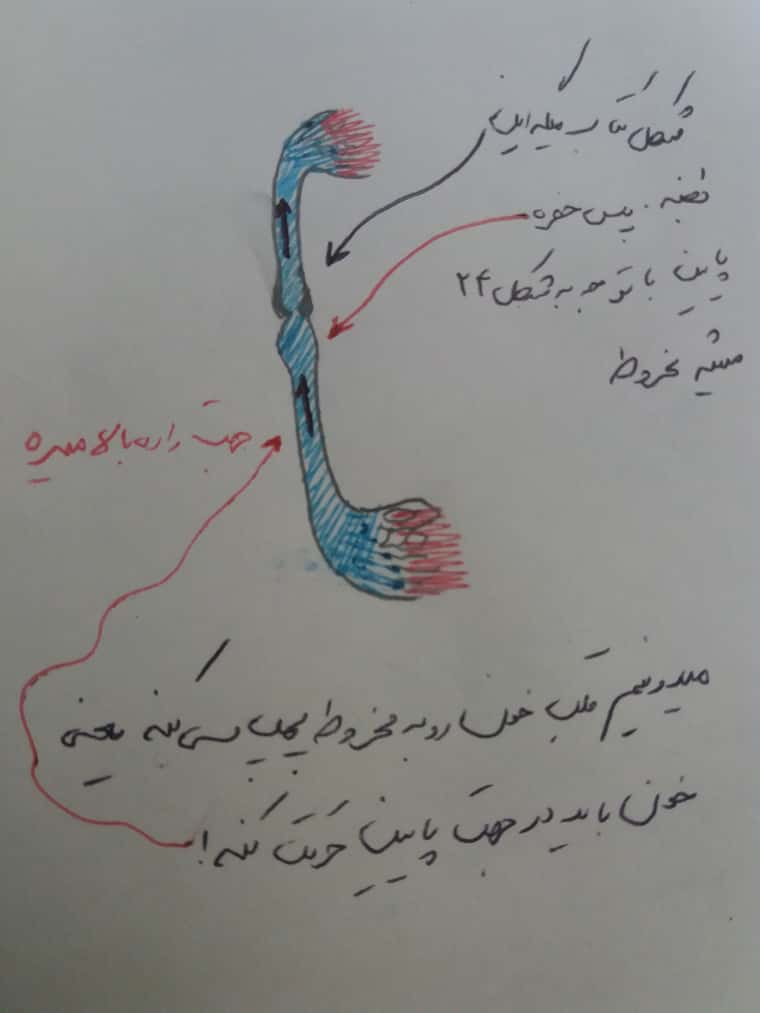 شکل کتاب میگه این
بطنه. پس حفره
پایین با توجه به شکل ۲۴
میشه مخروط
جهت داره بالا میره
میدونیم قلب خون رو به مخروط پمپاس می‌کنه یعنی
خون باید در جهت پایین حرکت کنه!